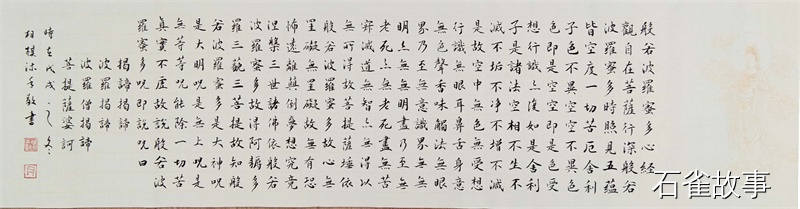 般若波羅蜜多心經
觀自在菩薩行深般若
波羅蜜多時照見五蘊
皆空度一切苦厄舍利
子色不異空空不異色
色即是空空即是色受
想行識亦復如是舍利
子是諸法空相不生不
滅不垢不淨不增不減
是故空中無色無受想
行識無眼耳鼻舌身意
無色聲香味觸法無眼
界乃至無意識界無無
明亦無無明盡乃至無
老死亦無老死盡無苦
集滅道無智亦無得以
無所得故菩提薩埵依
般若波羅蜜多故心無
罣礙無罣礙故無有恐
怖遠離顛倒夢想究竟
涅槃三世諸佛依般若
波羅蜜多故得阿耨多
羅三藐三菩提故知般
若波羅蜜多是大神呪
是大明呪是無上呪是
無等等呪能除一切苦
真實不虛故說般若波
羅蜜多呪即說呪曰
揭諦揭諦
波羅揭諦
波羅僧揭諦
菩提薩婆訶
時在戊戌之冬
敬書
石雀故事